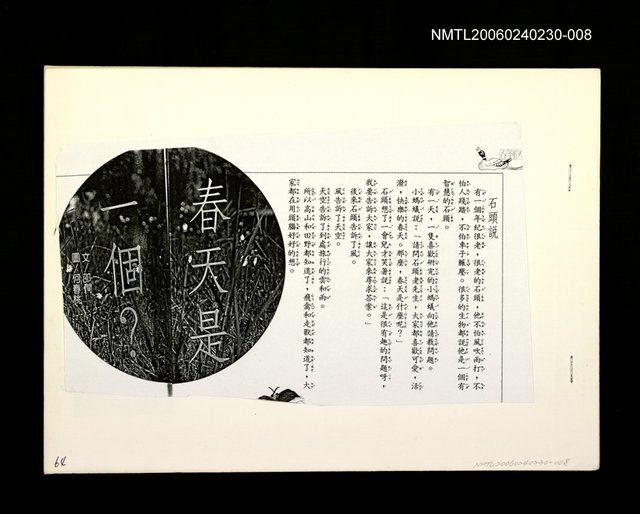 NMTL20060240230-008
石頭說
有一個年紀很老，很老的石頭，他不怕風吹雨打，不
怕人踐踏，不怕車子輾壓。很多的生物都說他是一個有
智慧的石頭。
有一天，一隻喜歡研究的小螞蟻向他請教問題。
小螞蟻說：「請問石頭老先生，大家都喜歡可愛，活
潑，快樂的春天。那麼，春天是什麼呢？」
石頭想了一會兒才笑著說：「這是很有趣的問題呀，
我要告訴大家，讓大家來尋求答案。」
後來石頭告訴了風。
風告訴了天空。
天空告訴了到處旅行的雲和雨。
所以高山和田野都知道了，飛禽和走獸都知道了，大
家都在用頭腦好好的想。
春天是
一個？
文／
圖／
64
NMTL20060240230-008